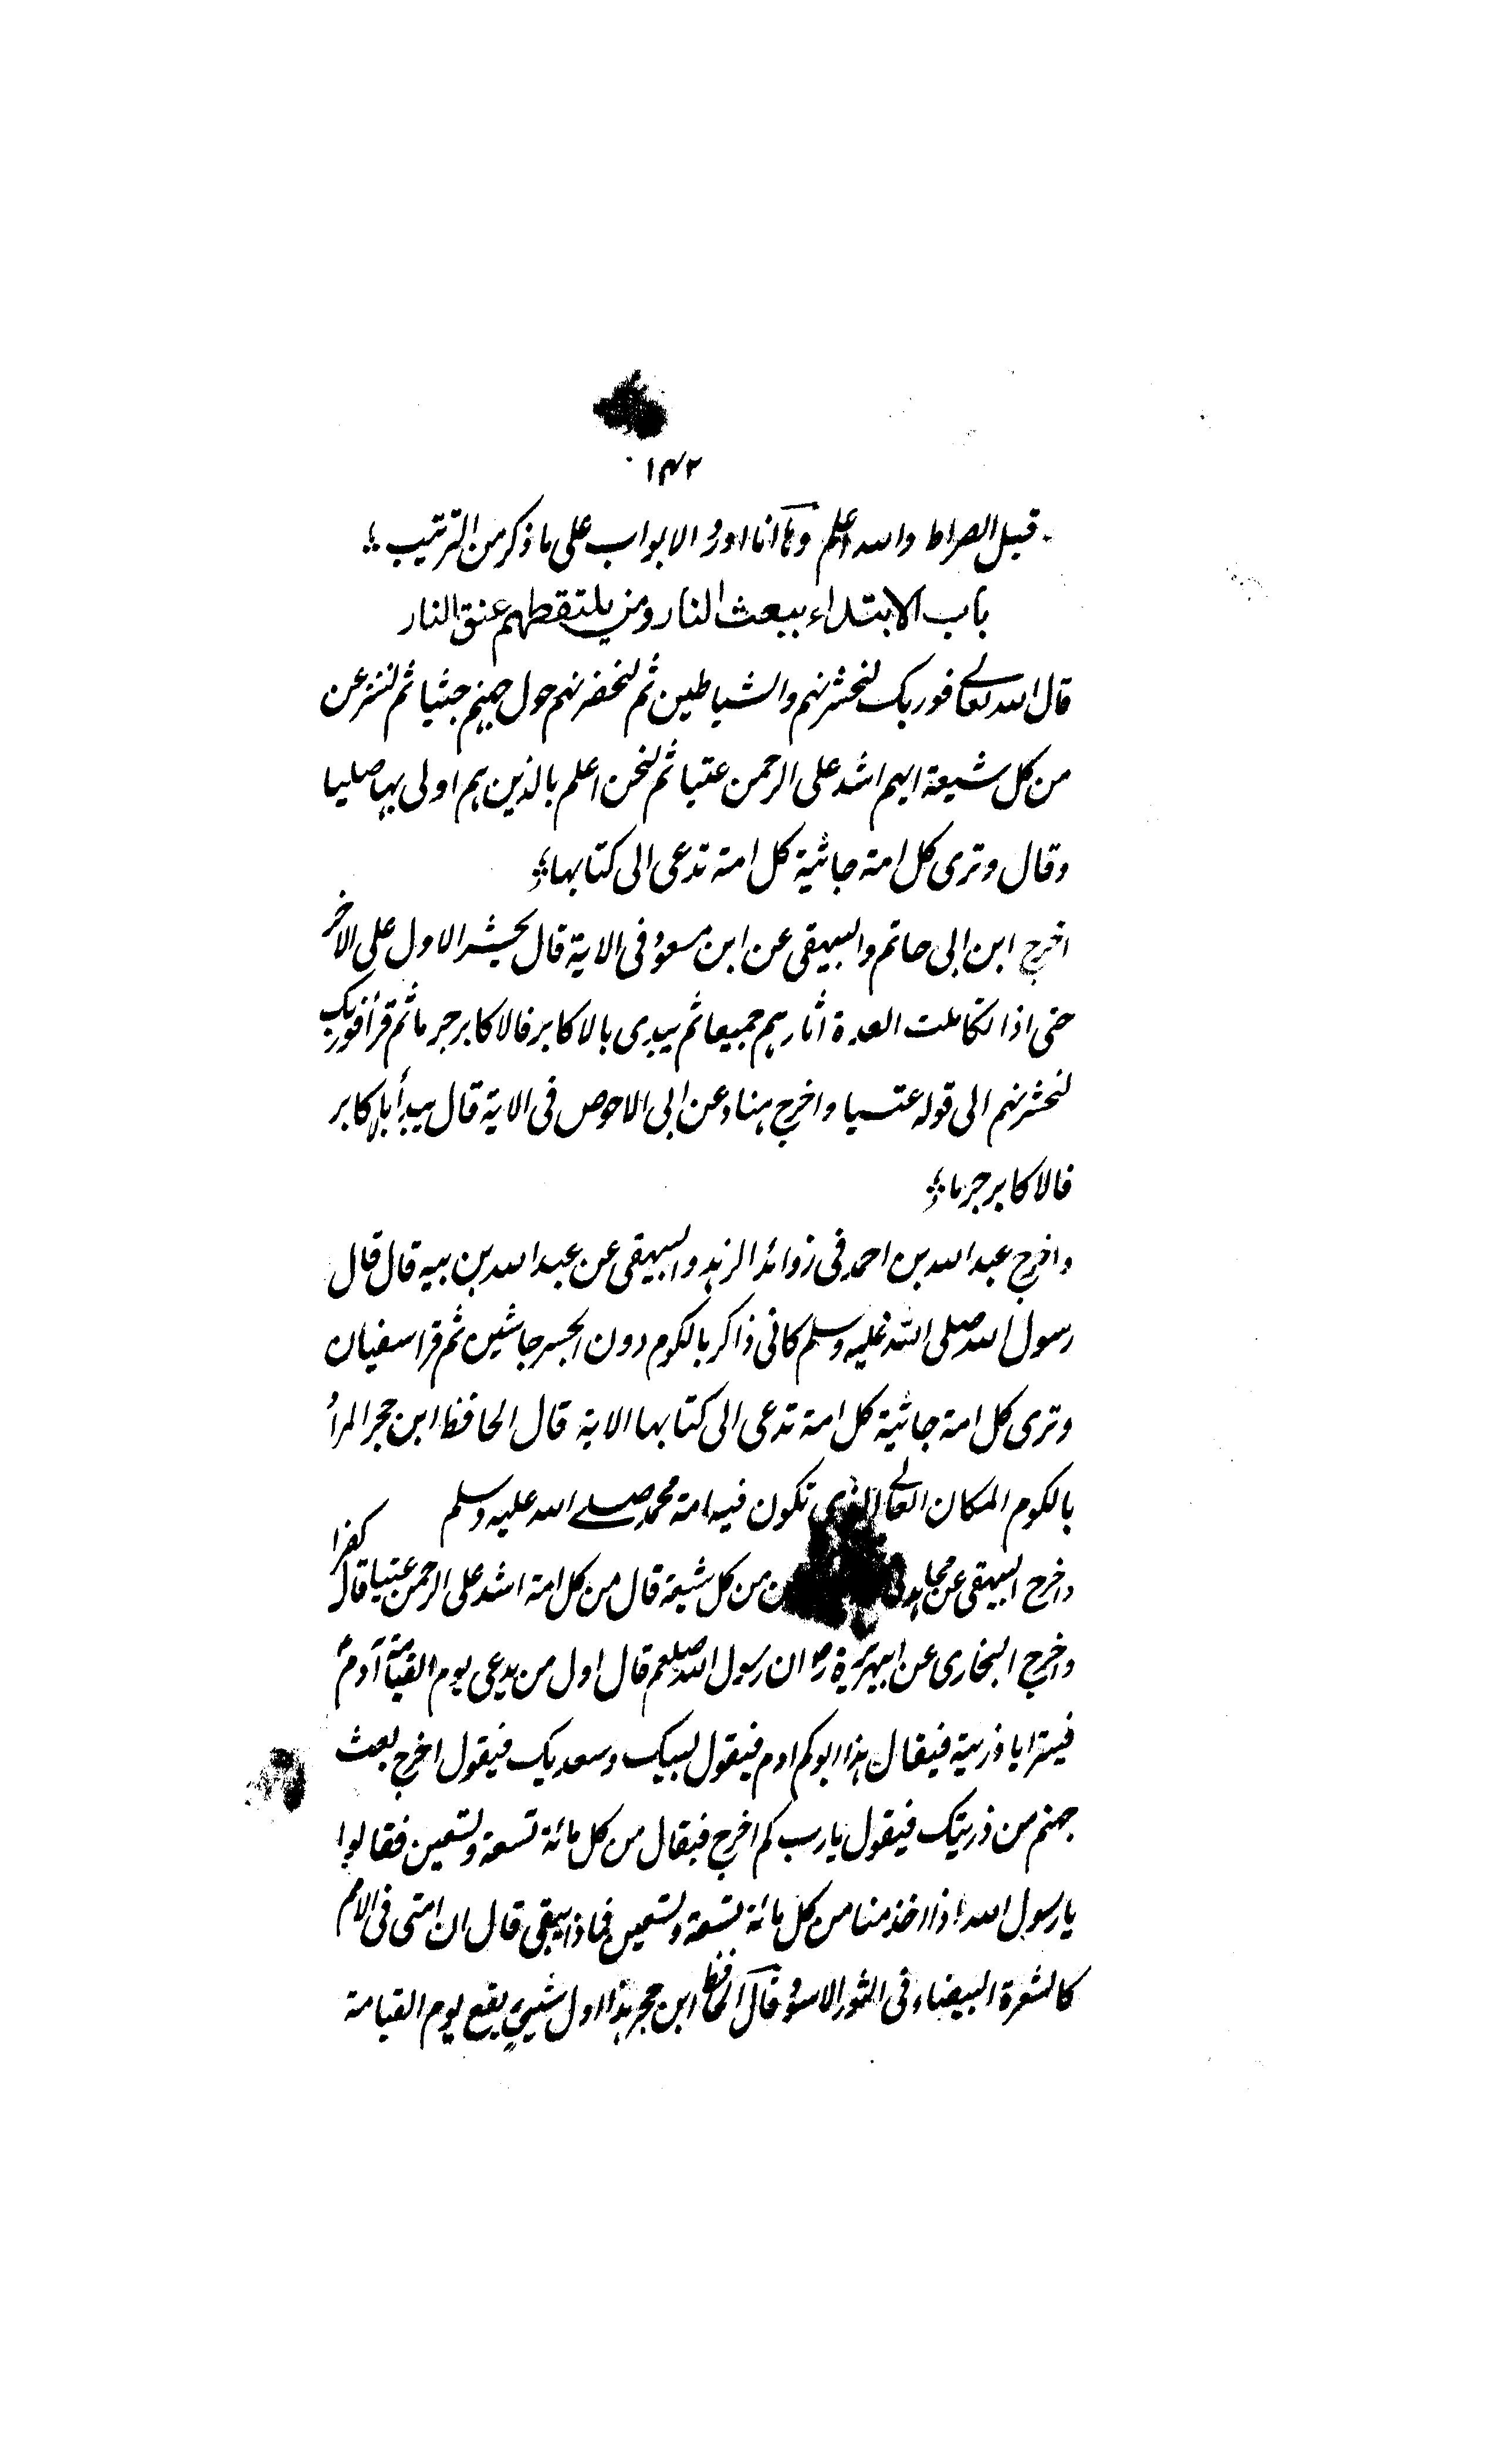 ١٤٢
قبل الصراط والله اعلم وها انا اورد الابواب على ما ذكر من الترتيب
باب الابتداء ببعث النار ومن يلتقطهم عنق النار
قال الله تعالى فوربك لنحشرنهم والشياطين ثم لنحضرنهم حول جهنم جثيا ثم لننزعن
من كل شيعة ايهم اشد على الرحمن عتيا ثم لنحن اعلم بالذين هم اولى بها صليا
وقال وترى كل امة جاثية كل امة تدعى الى كتابها
اخرج ابن ابى حاتم والبيهقى عن ابن مسعود فى الاية قال يحشر الاول على الاخر
حتى اذا تكاملت العدة اثارهم جميعا ثم يبدى بالاكابر فالاكابر جرما ثم قرأ فوربك
لنحشرنهم الى قوله عتيا واخرج هناد عن ابى الاحوص فى الاية قال يبدأ بالاكابر
فالاكابر جرما
واخرج عبد الله بن احمد فى زوائد الزهد والبيهقى عن عبد الله بن بيه قال قال
رسول الله صلى الله عليه وسلم كانى ذاكر بالكوم دون الجسر جاثين ثم قرا سفيان
وترى كل امة جاثية كل امة تدعى الى كتابها الاية قال الحافظ ابن حجر المراد
بالكوم المكان العالى الذى تكون فيه امة محمد صلے الله عليه وسلم
واخرج البيهقى عن مجاهد من كل شيعة قال من كل امة اشد على الرحمن عتيا قال كفرا
واخرج البخارى عن ابيهريرة رض ان رسول الله صلعم قال اول من يدعى يوم القيامة آدم
فيترايا ذريته فيقال هذا ابوكم ادم فيقول لبيك وسعديك فيقول اخرج بعث
جهنم من ذريتك فيقول يارب كم اخرج فيقال من كل مائة تسعة وتسعين فقالوا
يا رسول الله اذا اخذ منا من كل مائة تسعة وتسعين فماذا يبقى قال ان امتى فى الامم
كالشعرة البيضاء فى الثور الاسود قال الحافظ ابن حجر هذا اول شيئ يقع يوم القيامة